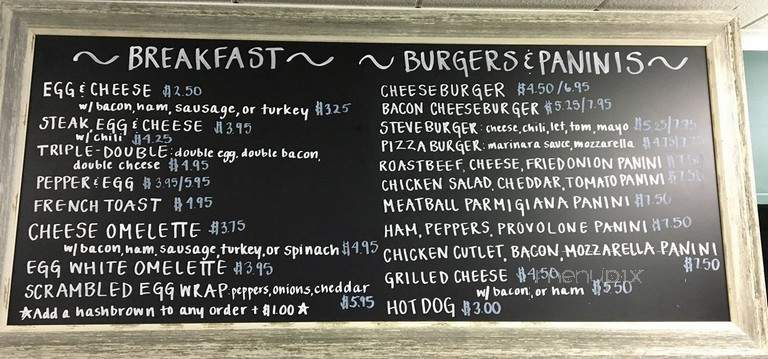 ~ BREAKFAST ~
EGG & CHEESE $2.50
w/ bacon, ham, sausage, or turkey $3.25
STEAK, EGG & CHEESE $3.95
w/ chili $4.25
TRIPLE-DOUBLE: double egg, double bacon,
double cheese $4.95
PEPPER & EGG $3.95/5.95
FRENCH TOAST $4.95
CHEESE OMELETTE $3.75
w/ bacon, ham, sausage, turkey, or spinach $4.95
EGG WHITE OMELETTE $3.95
SCRAMBLED EGG WRAP: peppers, onions, cheddar
$5.95
★Add a hashbrown to any order + $1.00★
~ BURGERS & PANINIS ~
CHEESEBURGER $4.50/6.95
BACON CHEESEBURGER $5.25/7.95
STEVE BURGER: cheese, chili, let, tom, mayo $5.25/7.95
PIZZA BURGER: marinara sauce, mozzarella
ROAST BEEF, CHEESE, FRIED ONION PANINI $7.50
CHICKEN SALAD, CHEDDAR, TOMATO PANINI $7.50
MEATBALL PARMIGIANA PANINI $7.50
HAM, PEPPERS, PROVOLONE PANINI $7.50
CHICKEN CUTLET, BACON, MOZZARELLA PANINI
$7.50
GRILLED CHEESE $4.50
menupix
w/ bacon, or ham $5.50
HOT DOG $3.00